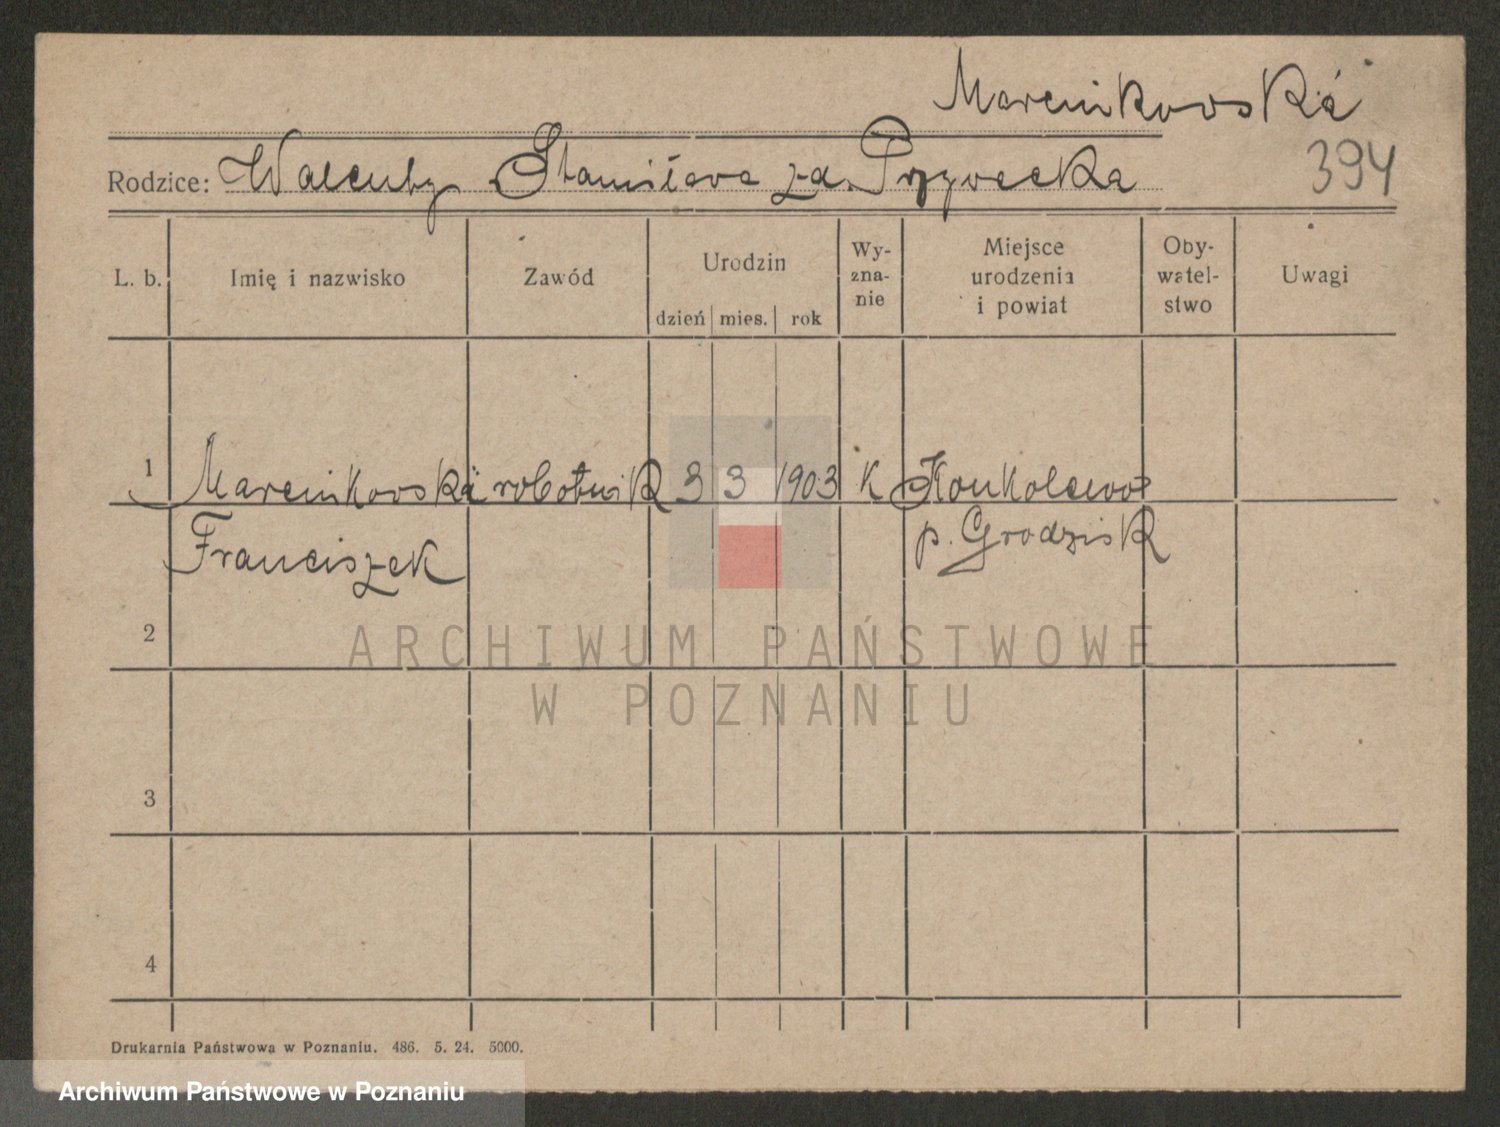 Marcinkowski
394
Rodzice: Walenty Stanisława zd. Przywecka
L. b. Imię i nazwisko Zawód Urodzin dzień mies. rok Wy-zna-nie Miejsce urodzenia i powiat Oby-watel-stwo Uwagi
1 Marcinkowski robotnik 3 3 1903 K Konkolewo
Franciszek p. Grodzisk
2
ARCHIWUM PAŃSTWOWE
W POZNANIU
3
4
Drukarnia Państwowa w Poznaniu. 486. 5. 24. 5000.
Archiwum Państwowe w Poznaniu